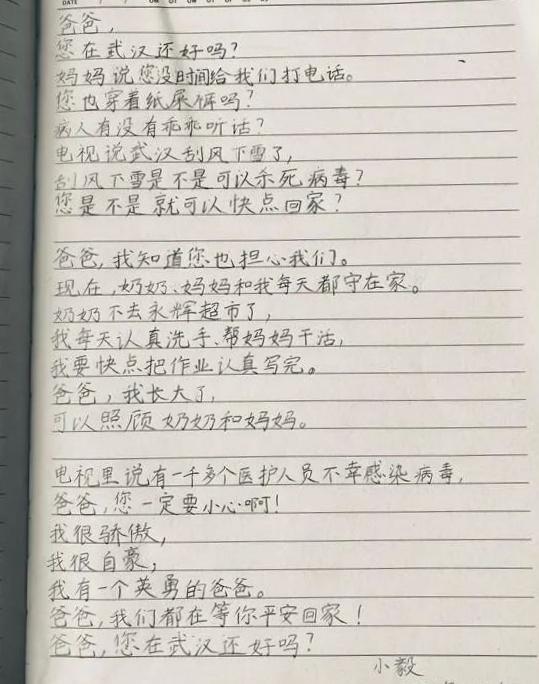 DATE
爸爸,
您在武汉还好吗?
妈妈说您没时间给我们打电话。
您也穿着纸尿裤吗?
病人有没有乖乖听话?
电视说武汉刮风下雪了,
刮风下雪是不是可以杀死病毒?
您是不是就可以快点回家?
爸爸,我知道您也担心我们。
现在,奶奶、妈妈和我每天都守在家。
奶奶不去永辉超市了,
我每天认真洗手、帮妈妈干活,
我要快点把作业认真写完。
爸爸,我长大了,
可以照顾奶奶和妈妈。
电视里说有一千多个医护人员不幸感染病毒,
爸爸,您一定要小心啊!
我很骄傲,
我很自豪,
我有一个英勇的爸爸。
爸爸,我们都在等你平安回家!
爸爸,您在武汉还好吗?
小毅